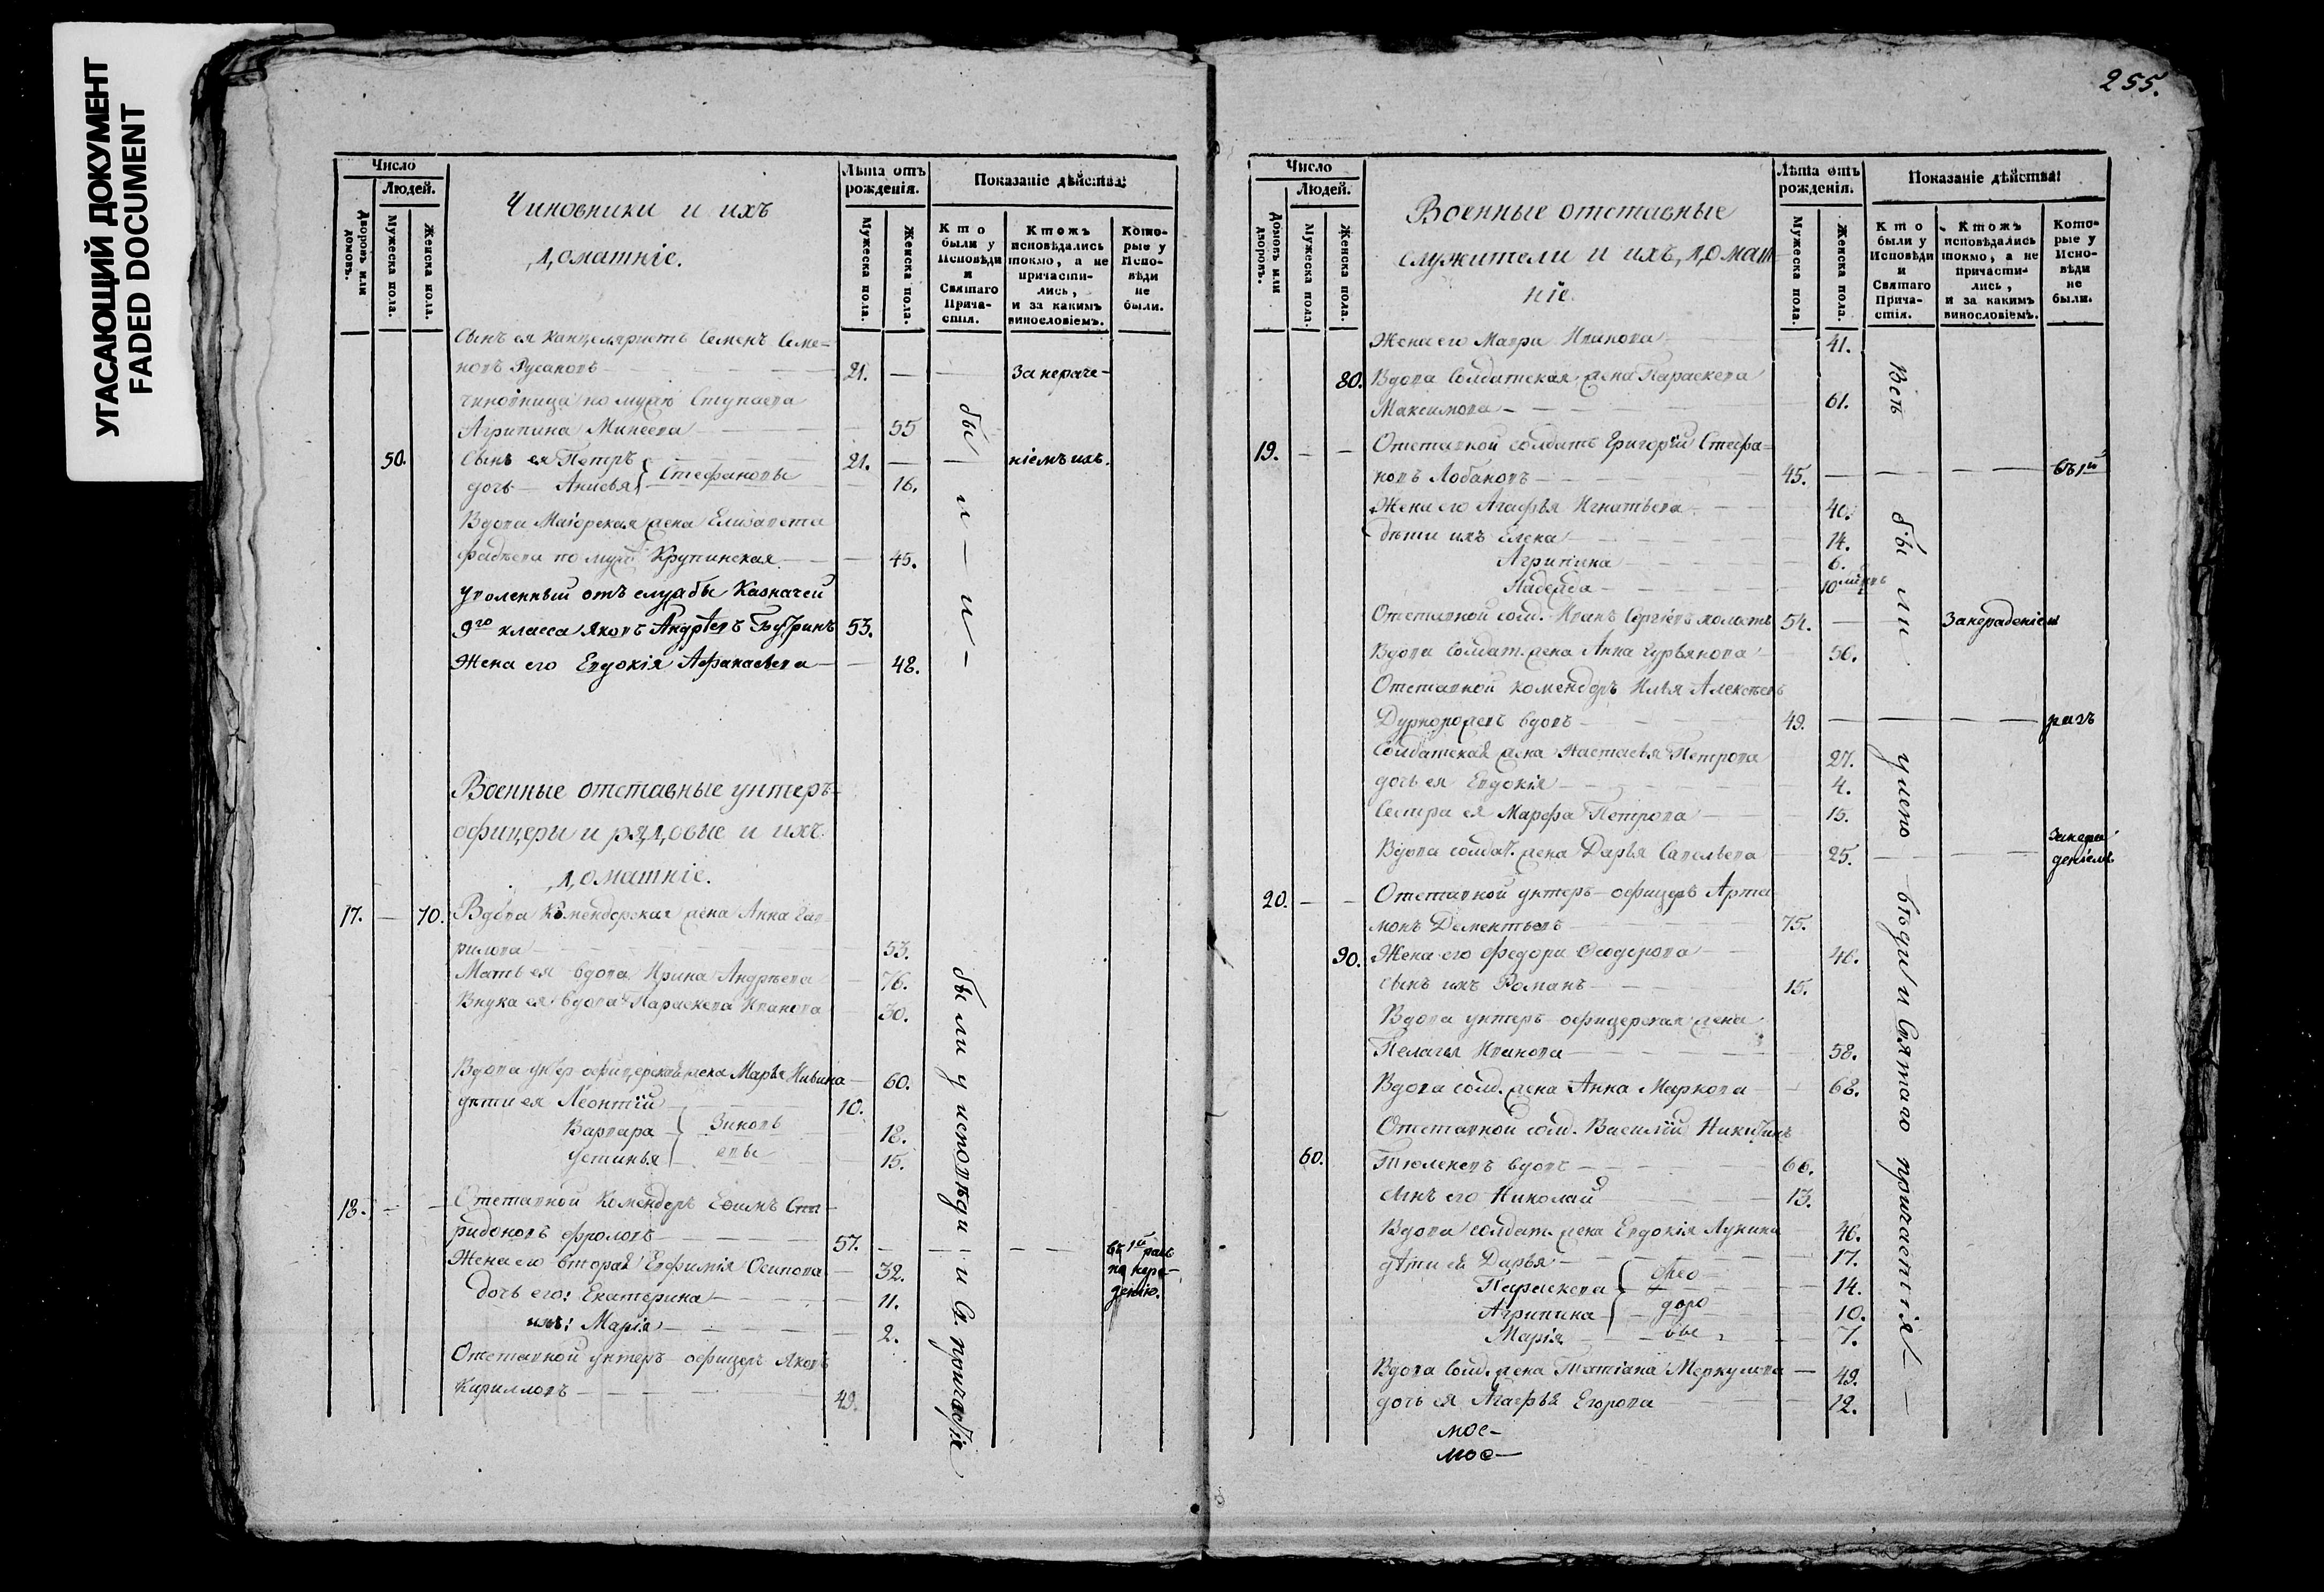 УГАСАЮЩИЙ ДОКУМЕНТ
FADED DOCUMENT
Число
Людей.
Дворовъ или домовъ.
Мужеска пола.
Женска пола.
Чиновники и ихъ
домашніе.
Лѣта отъ рожденія.
Мужеска пола.
Женска пола.
Показаніе дѣйства:
Кто были у Исповѣди и Святаго Прича-стія.
Ктожъ исповѣдались токмо, а не причасти-лись, и за какимъ винословіемъ.
Кото-рые у Испо-вѣди не были.
Сынъ ея канцеляристъ Семенъ Семе-
новъ Русаковъ 21. За нераче-
чиновница по мужѣ Ступаева
Агрипина Минеева 55
50. Сынъ ея Петръ 21. ніемъ ихъ.
дочь Анисья Стефановы 16.
Вдова Маіорская жена Елизавета
Фадѣева по мужѣ Крупинская 45.
Уволенный отъ службы Казначей
9го класса Яковъ Андреевъ 53.
Жена его Евдокія Афанасьева 48.
были
Военные отставные унтеръ-
офицеры и рядовые и ихъ
домашніе.
17. 70. Вдова Комендорская жена Анна Гав-
рилова 53.
Мать ея вдова Ирина Андреева 76.
Внука ея вдова Параскева Иванова 30.
Вдова унтер офицерская жена Марья 60.
дѣти ея Леонтій 10.
Варвара Зиновь 18.
Устинья евы 15.
18. Отставной Комендоръ Ефимъ Спи-
ридоновъ Фроловъ 57. въ 1й разъ
Жена его вторая Евфимія Осипова 32. по нера-
дочь его: Екатерина 11. денію.
ихъ: Марія 2.
Отставной унтеръ офицеръ Яковъ
Кирилловъ 49.
были у исповѣди и Св. причастія
255.
Число
Людей.
Домовъ или дворовъ.
Мужеска пола.
Женска пола.
Военные отставные
служители и ихъ домаш-
ніе.
Лѣта отъ рожденія.
Мужеска пола.
Женска пола.
Показаніе дѣйства:
Кто были у Исповѣди и Святаго Прича-стія.
Ктожъ исповѣдались токмо, а не причасти-лись, и за какимъ винословіемъ.
Кото-рые у Испо-вѣди не были.
Жена его Мавра Иванова 41.
80. Вдова Солдатская жена Параскева
Максимова 61.
19. Отставной солдатъ Григорій Стефа-
новъ Лобановъ 45. въ 1й
Жена его Агафья Игнатьева 40.
дѣти ихъ Елена 14.
Агрипина 6.
Надежда 10
Отставной солд. Иванъ Сергѣевъ холостъ 54. За нерадѣніемъ
Вдова Солдат. жена Анна Гурьянова 56.
Отставной комендоръ Илья Алексѣевъ
вдовъ 49. разъ
Солдатская жена Настасья Петрова 27.
дочь ея Евдокія 4.
Сестра ея Марфа Петрова 15.
Вдова солдат. жена Дарья Савельева 25. За нера-
деніемъ.
20. Отставной унтеръ-офицеръ Арта-
монъ Дементьевъ 75.
90. Жена его Федора Феодорова 46.
сынъ ихъ Романъ 15.
Вдова унтеръ-офицерская жена
Пелагея Иванова 58.
Вдова солд. жена Анна Маркова 68.
Отставной солд. Василій Никитинъ
60. Тюленевъ вдовъ 66.
сынъ его Николай 13.
Вдова солдат. жена Евдокія Лукина 46.
дѣти ея Дарья 17.
Параскева Фео 14.
Агрипина доро 10.
Марія вы 7.
Вдова Солд. жена Татіана Меркулова 49.
дочь ея Агафья Егорова 12.
мое-
мое-
Всѣ были у исповѣди и Святаго причастія